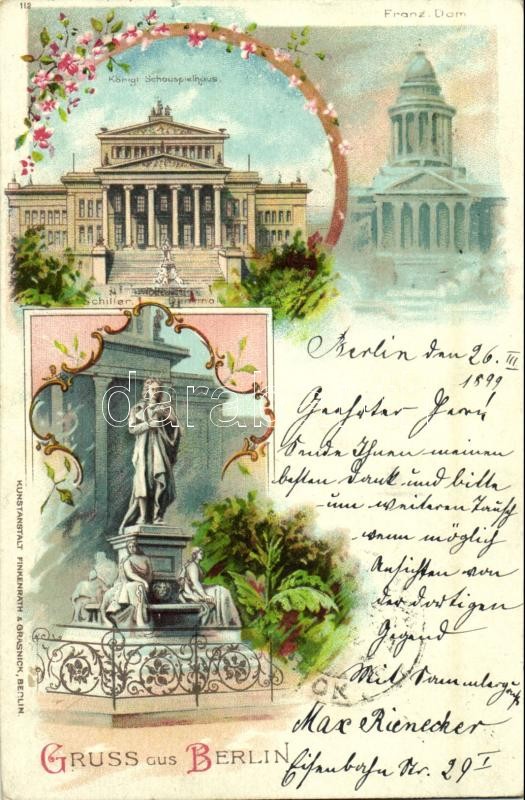 112
Franz. Dom
Königl. Schauspielhaus.
Schiller. Denkmal
Berlin den 26. III
1899
Geehrter Herr!
Sende Ihnen meinen
besten Dank und bitte
um weiteren Tausch
wenn möglich
Ansichten von
der dortigen
Gegend
Mit Sammlergruß
Max Rienecker
Eisenbahn Str. 29 I
GRUSS aus BERLIN
KUNSTANSTALT FINKENRATH & GRASNICK, BERLIN.
darabanth